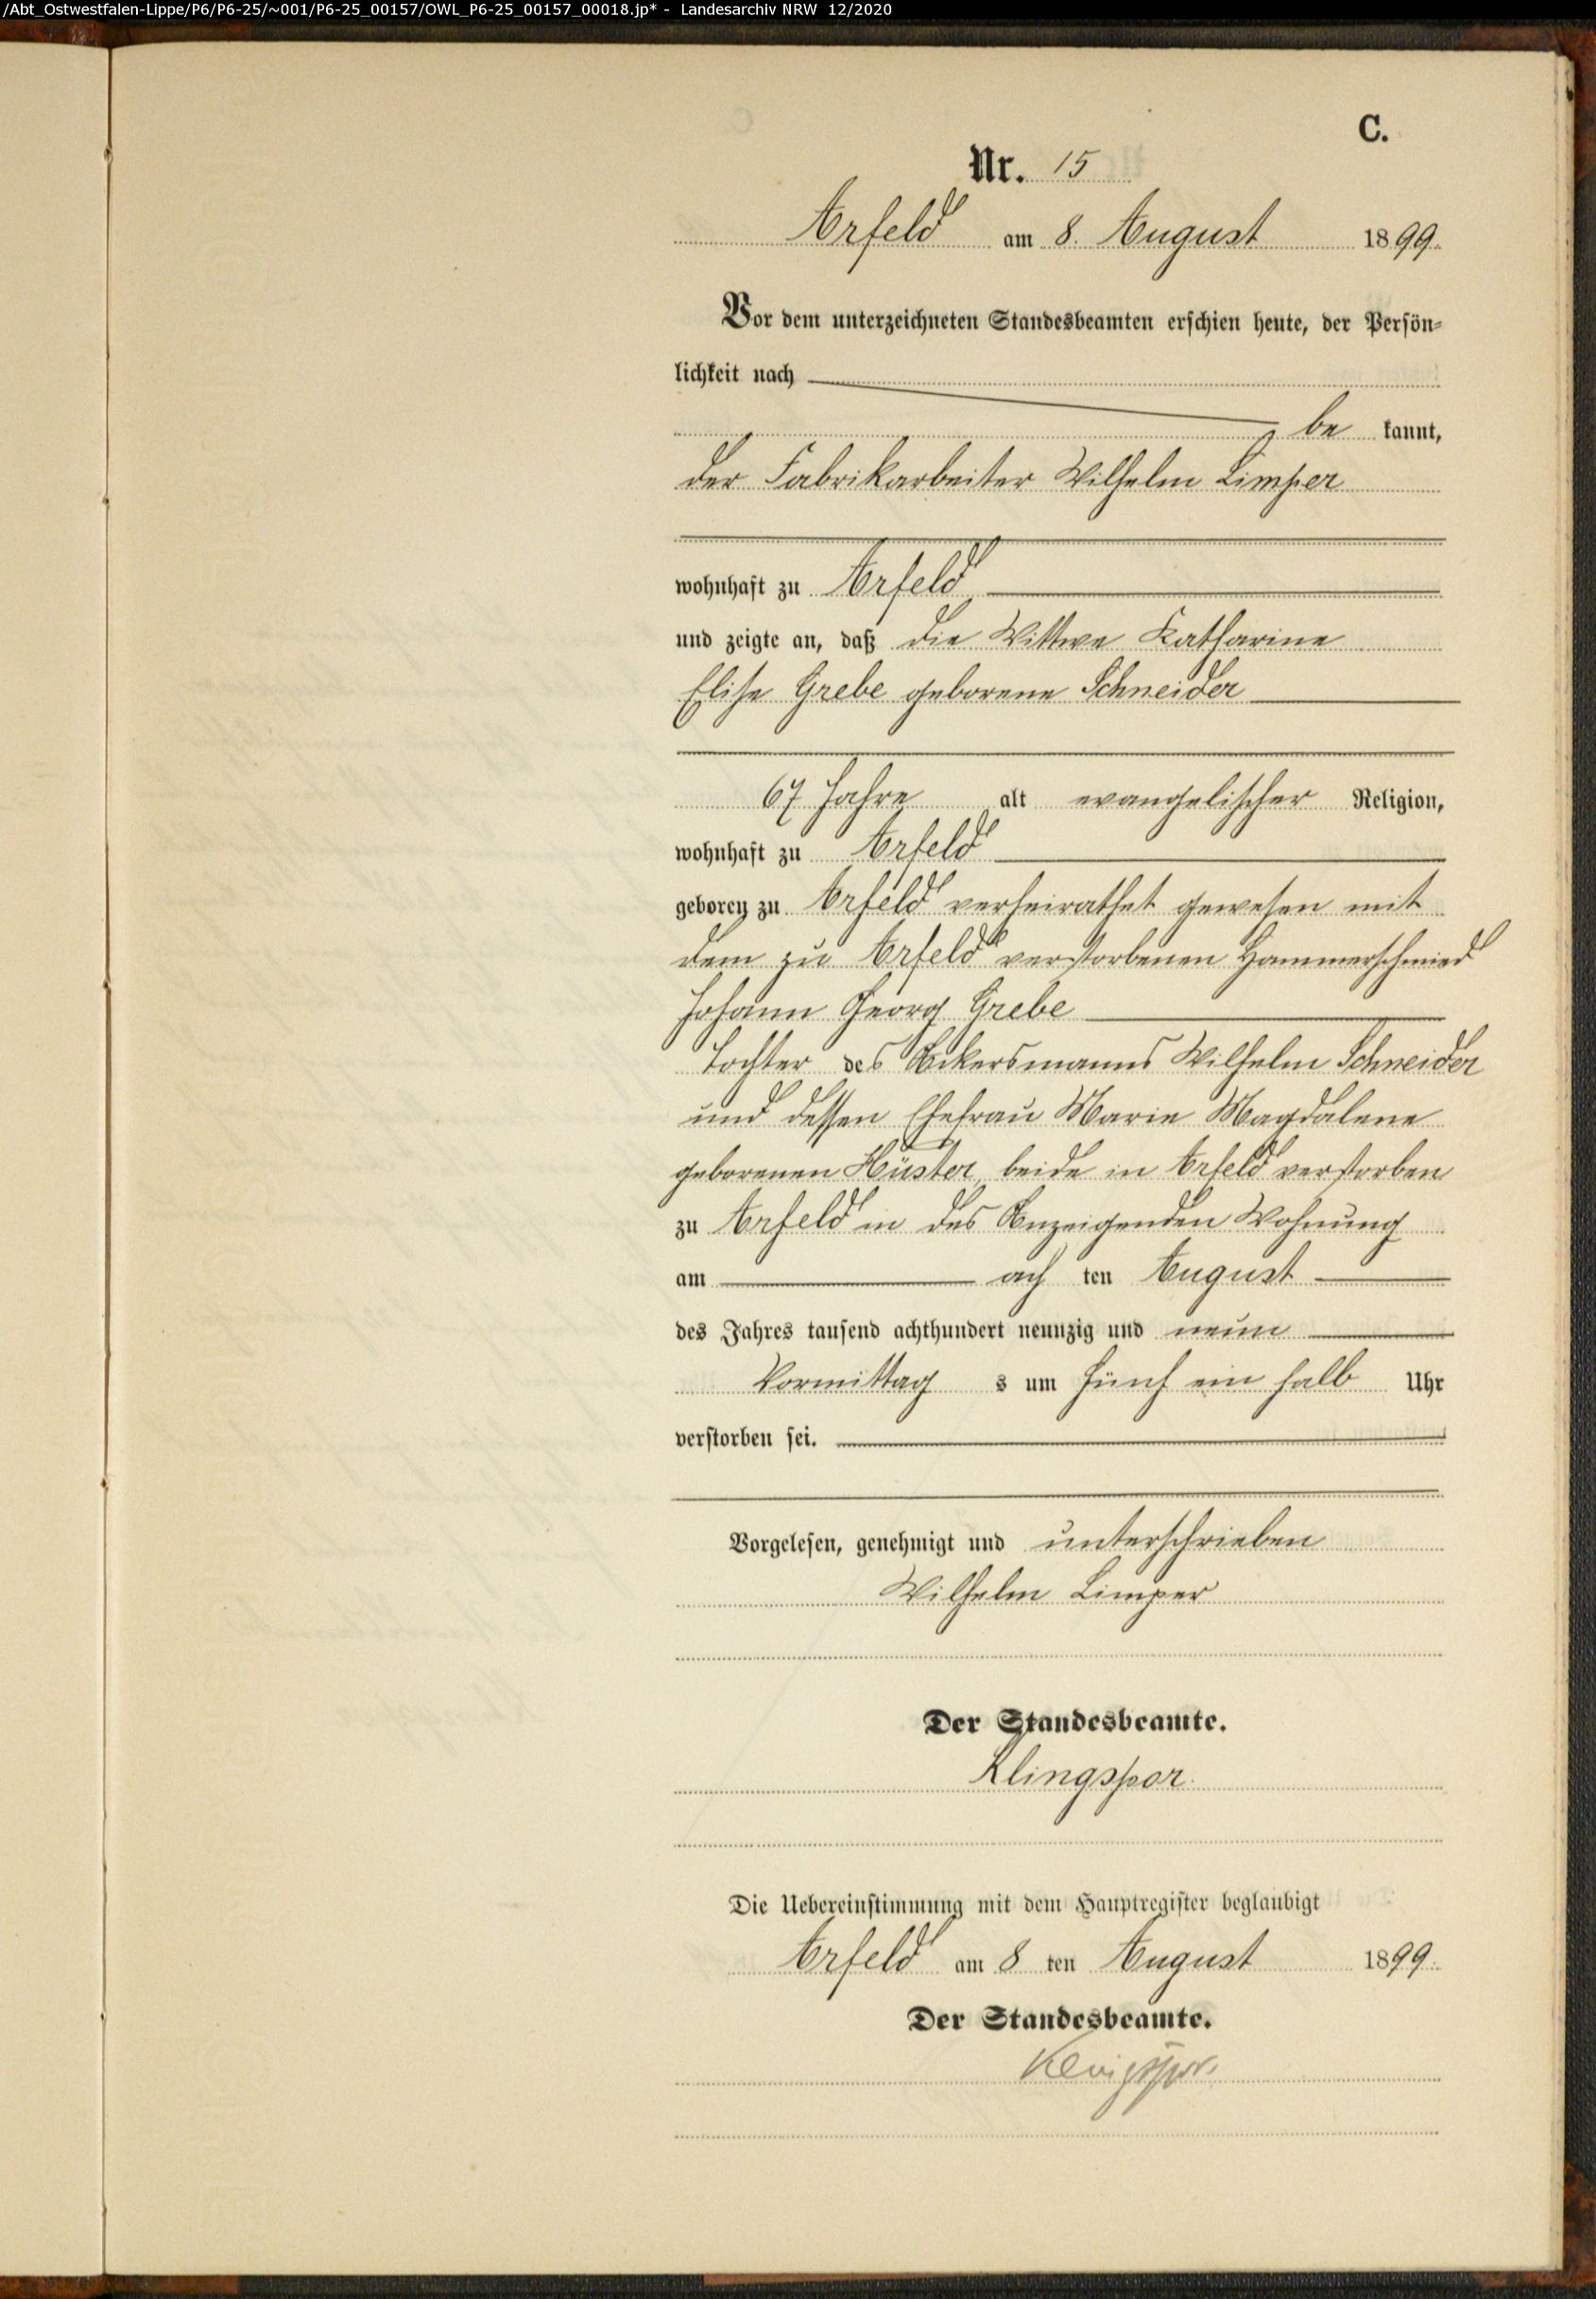 /Abt_Ostwestfalen-Lippe/P6/P6-25/~001/P6-25_00157/OWL_P6-25_00157_00018.jp* - Landesarchiv NRW 12/2020
C.
Nr. 15
Arfeld am 8. August 1899.
Vor dem unterzeichneten Standesbeamten erschien heute, der Persön-
lichkeit nach
be kannt,
der Fabrikarbeiter Wilhelm Limper
wohnhaft zu Arfeld
und zeigte an, daß die Wittwe Katharine
Elise Grebe geborene Schneider
67 Jahre alt evangelischer Religion,
wohnhaft zu Arfeld
geboren zu Arfeld verheirathet gewesen mit
dem zu Arfeld verstorbenen Hammerschmied
Johann Georg Grebe
Tochter des Ackersmanns Wilhelm Schneider
und dessen Ehefrau Marie Magdalene
geborenen Hüster, beide in Arfeld verstorben
zu Arfeld in des Anzeigenden Wohnung
am ach ten August
des Jahres tausend achthundert neunzig und neun
Vormittag s um fünf ein halb Uhr
verstorben sei.
Vorgelesen, genehmigt und unterschrieben
Wilhelm Limper
Der Standesbeamte.
Klingspor.
Die Uebereinstimmung mit dem Hauptregister beglaubigt
Arfeld am 8 ten August 1899.
Der Standesbeamte.
Klingspor.